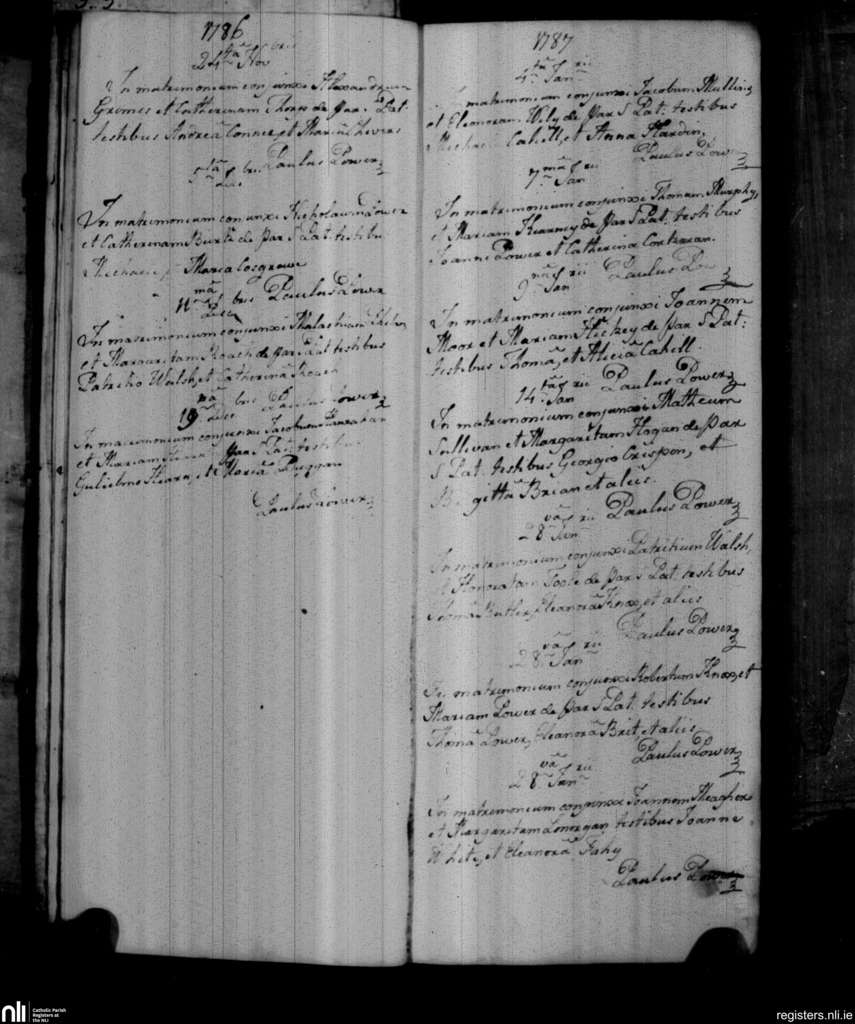 1786
24ta Novbris
In matrimonium conjunxi Alexandrum
Grimes et Catherinam Thorp de Par. Pat:
testibus Andrea Conner, et Maria Chevers
Paulus Power
5ta Decbris
In matrimonium conjunxi Nicholaum Power
et Catherinam Burke de Par S Pat: testibu
Michaele Maria Cosgrave
11ma Decbris Paulus Power
In matrimonium conjunxi
et Margaritam Roach de par S Pat testibus
Patritio Walsh, et Catherina Roach
19na Decbris Paulus Power
In matrimonium conjunxi Jacobum
et Mariam Par S Pat: testibus
Gulielmo Hearn, et Maria Duggan
Paulus Power
1787
4ta Janrii
matrimonium conjunxi Jacobum Mullins
et Eleonoram Wily de Par S Pat: testibus
Michaele Cahill, et Anna Hardin,
Paulus Power
7ma Janrii
In matrimonium conjunxi Thomam Murphy,
et Mariam Kearney de Par S Pat: testibus
Joanne Power et Catherina Corkeran.
9na Janrii Paulus Po
In matrimonium conjunxi Joannem
Moor et Mariam Hickey de par S Pat:
testibus Thoma, et Alicia Cahill.
14ta Janrii Paulus Power
In matrimonium conjunxi Matheum
Sullivan et Margaritam Hogan de Par
S Pat: testibus Georgio Crispon, et
Brigitta Brian et aliis.
28va Janrii Paulus Power
In matrimonium conjunxi Patritium Walsh,
et Honoratam Toole de par S Pat: testibus
Thoma Butler, Eleanora Knox, et aliis
Paulus Power
28va Janrii
In matrimonium conjunxi Robertum Knox, et
Mariam Power de Par S Pat: testibus
Thoma Power, Eleanora Brit, et aliis
Paulus Power
28va Janrii
In matrimonium conjunxi Joannem Meagher
et Margaritam Lonergan testibus Joanne
White, et Eleanora Fahy
Paulus Power
nli Catholic Parish
Registers at
the NLI
registers.nli.ie